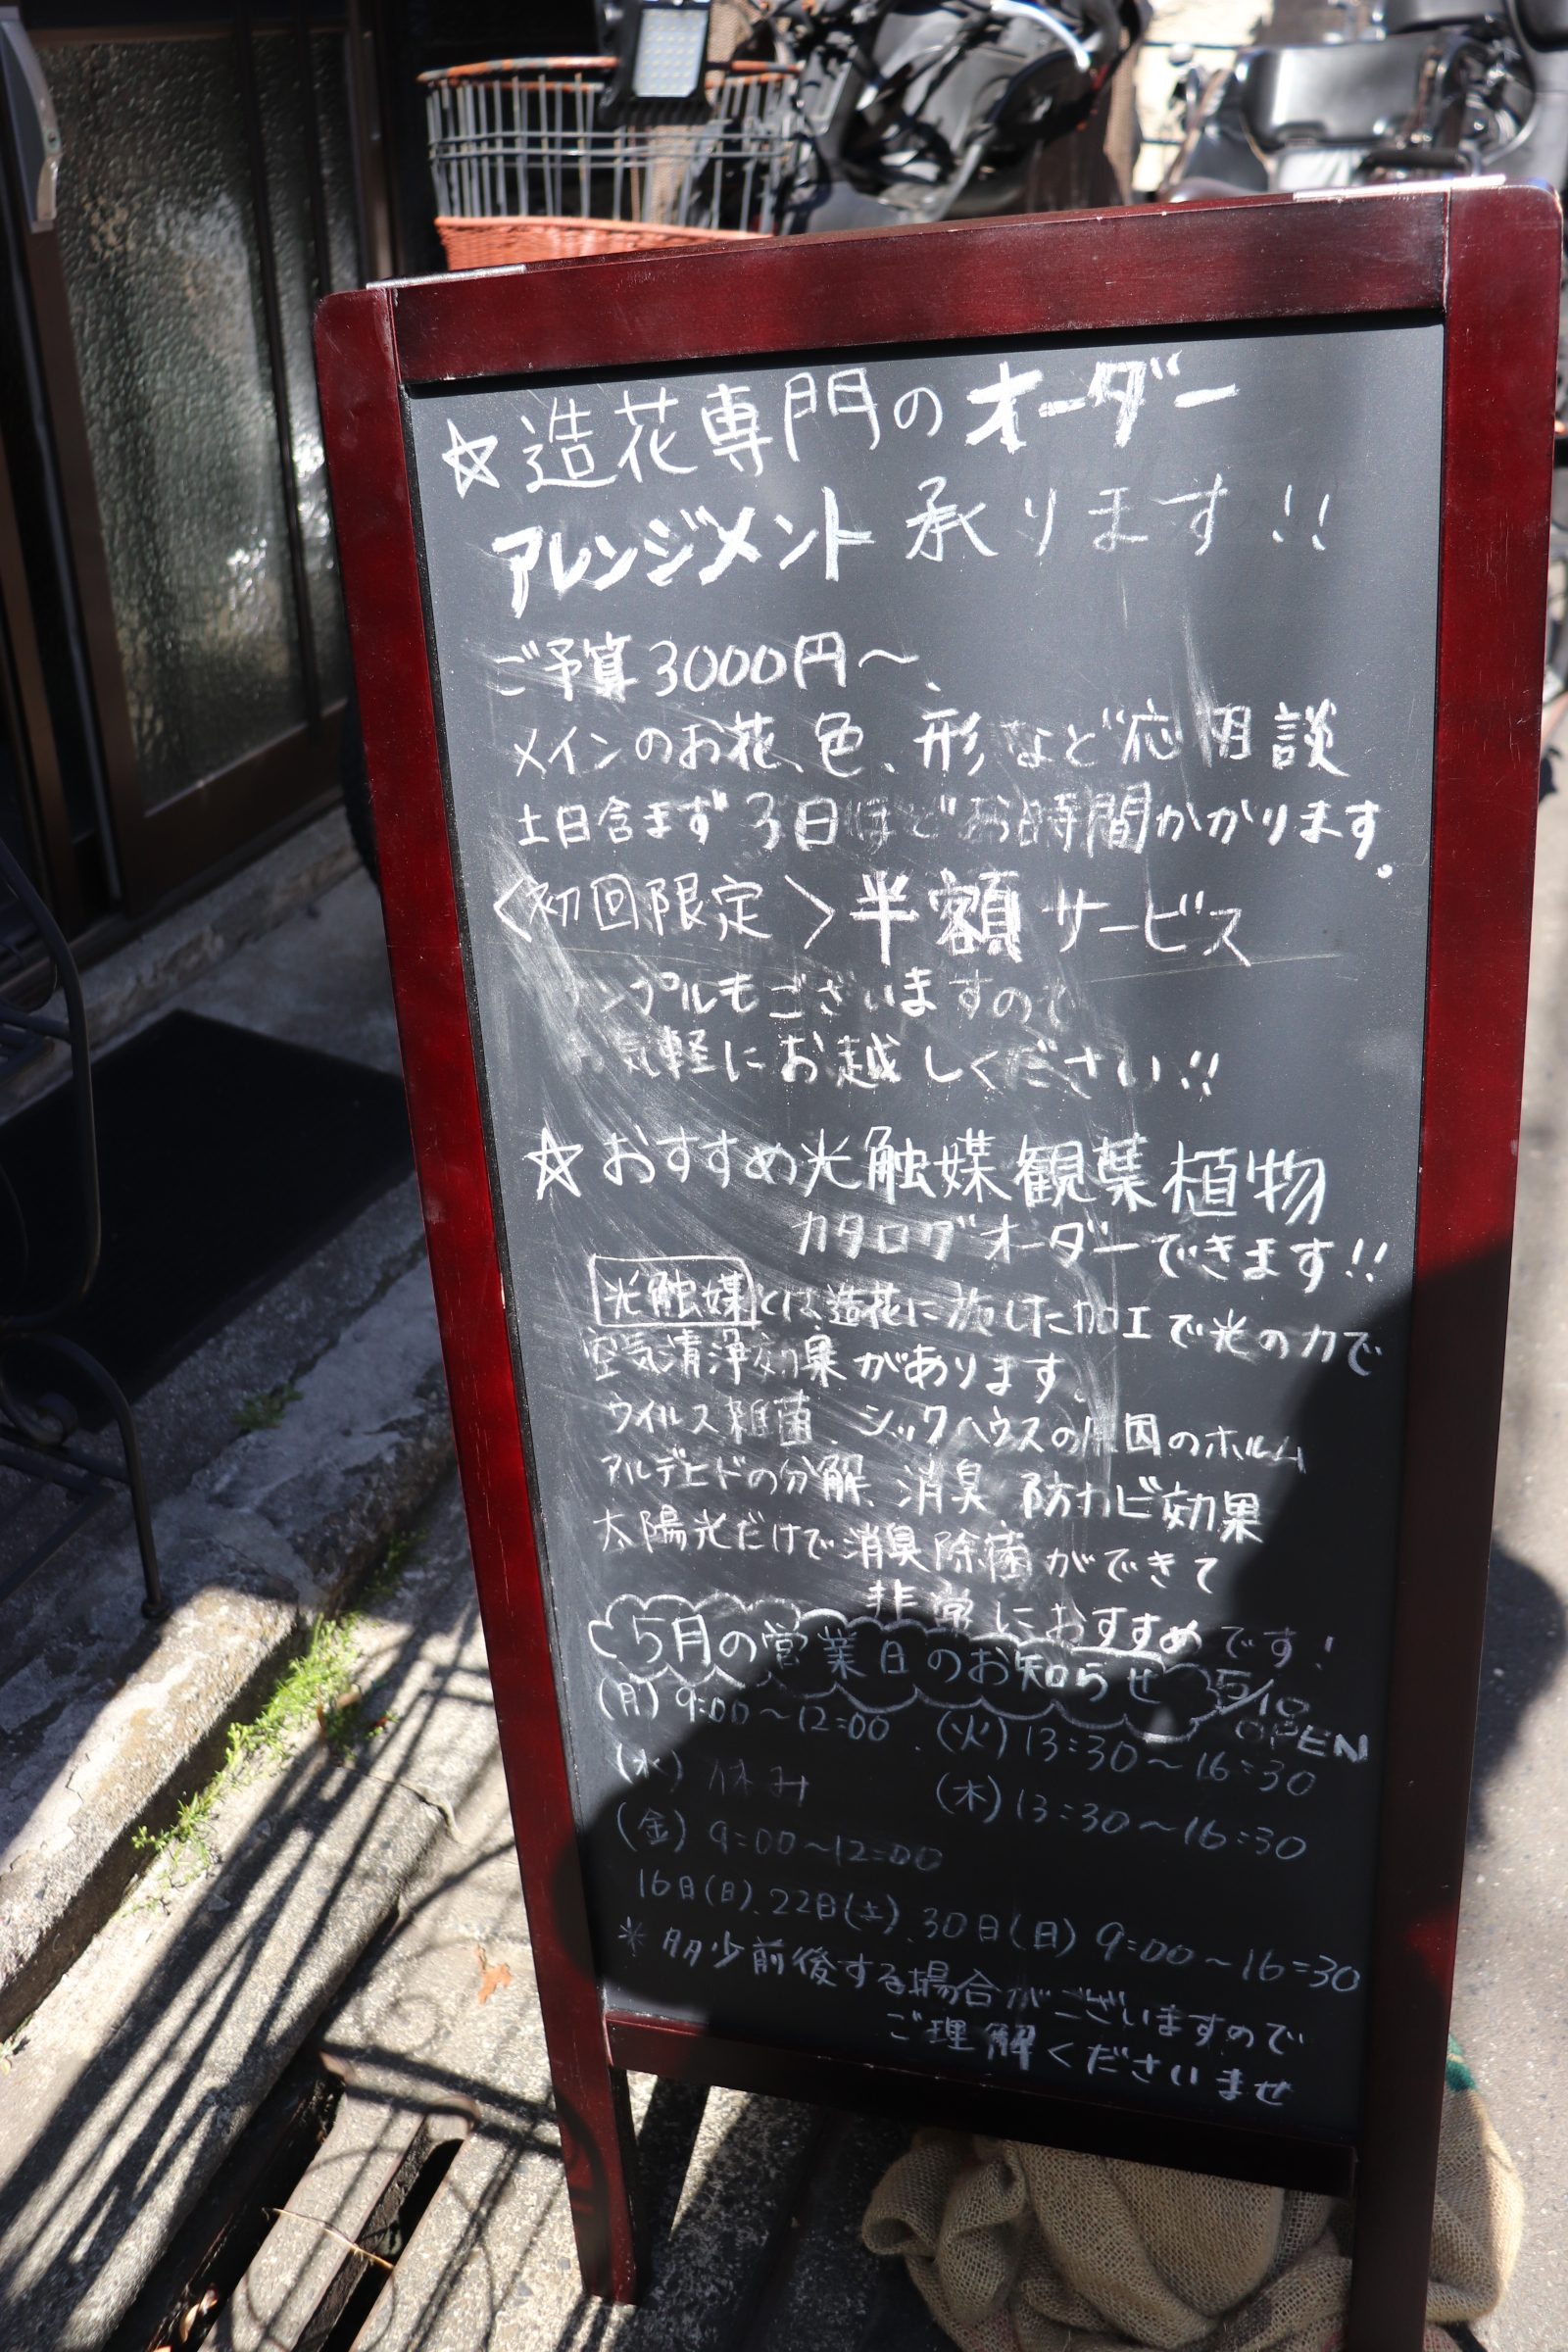 ☆造花専門のオーダー
アレンジメント承ります!!
ご予算3000円〜、
メインのお花、色、形など応相談
土日含まず3日ほどお時間かかります。
〈初回限定〉半額サービス
ンプルもございますので
気軽にお越しください!!
☆おすすめ光触媒観葉植物
カタログオーダーできます!!
光触媒とは、造花に施した加工で光の力で
空気清浄効果があります。
ウイルス雑菌 シックハウスの原因のホルム
アルデヒドの分解、消臭 防カビ効果
太陽光だけで消臭除菌ができて
非常におすすめです!
5月の営業日のお知らせ 5/10 OPEN
(月)9:00〜12:00 (火)13:30〜16:30
(水)休み (木)13:30〜16:30
(金)9:00〜12:00
16日(日)、22日(土)、30日(日)9:00〜16:30
*多少前後する場合がございますので
ご理解くださいませ